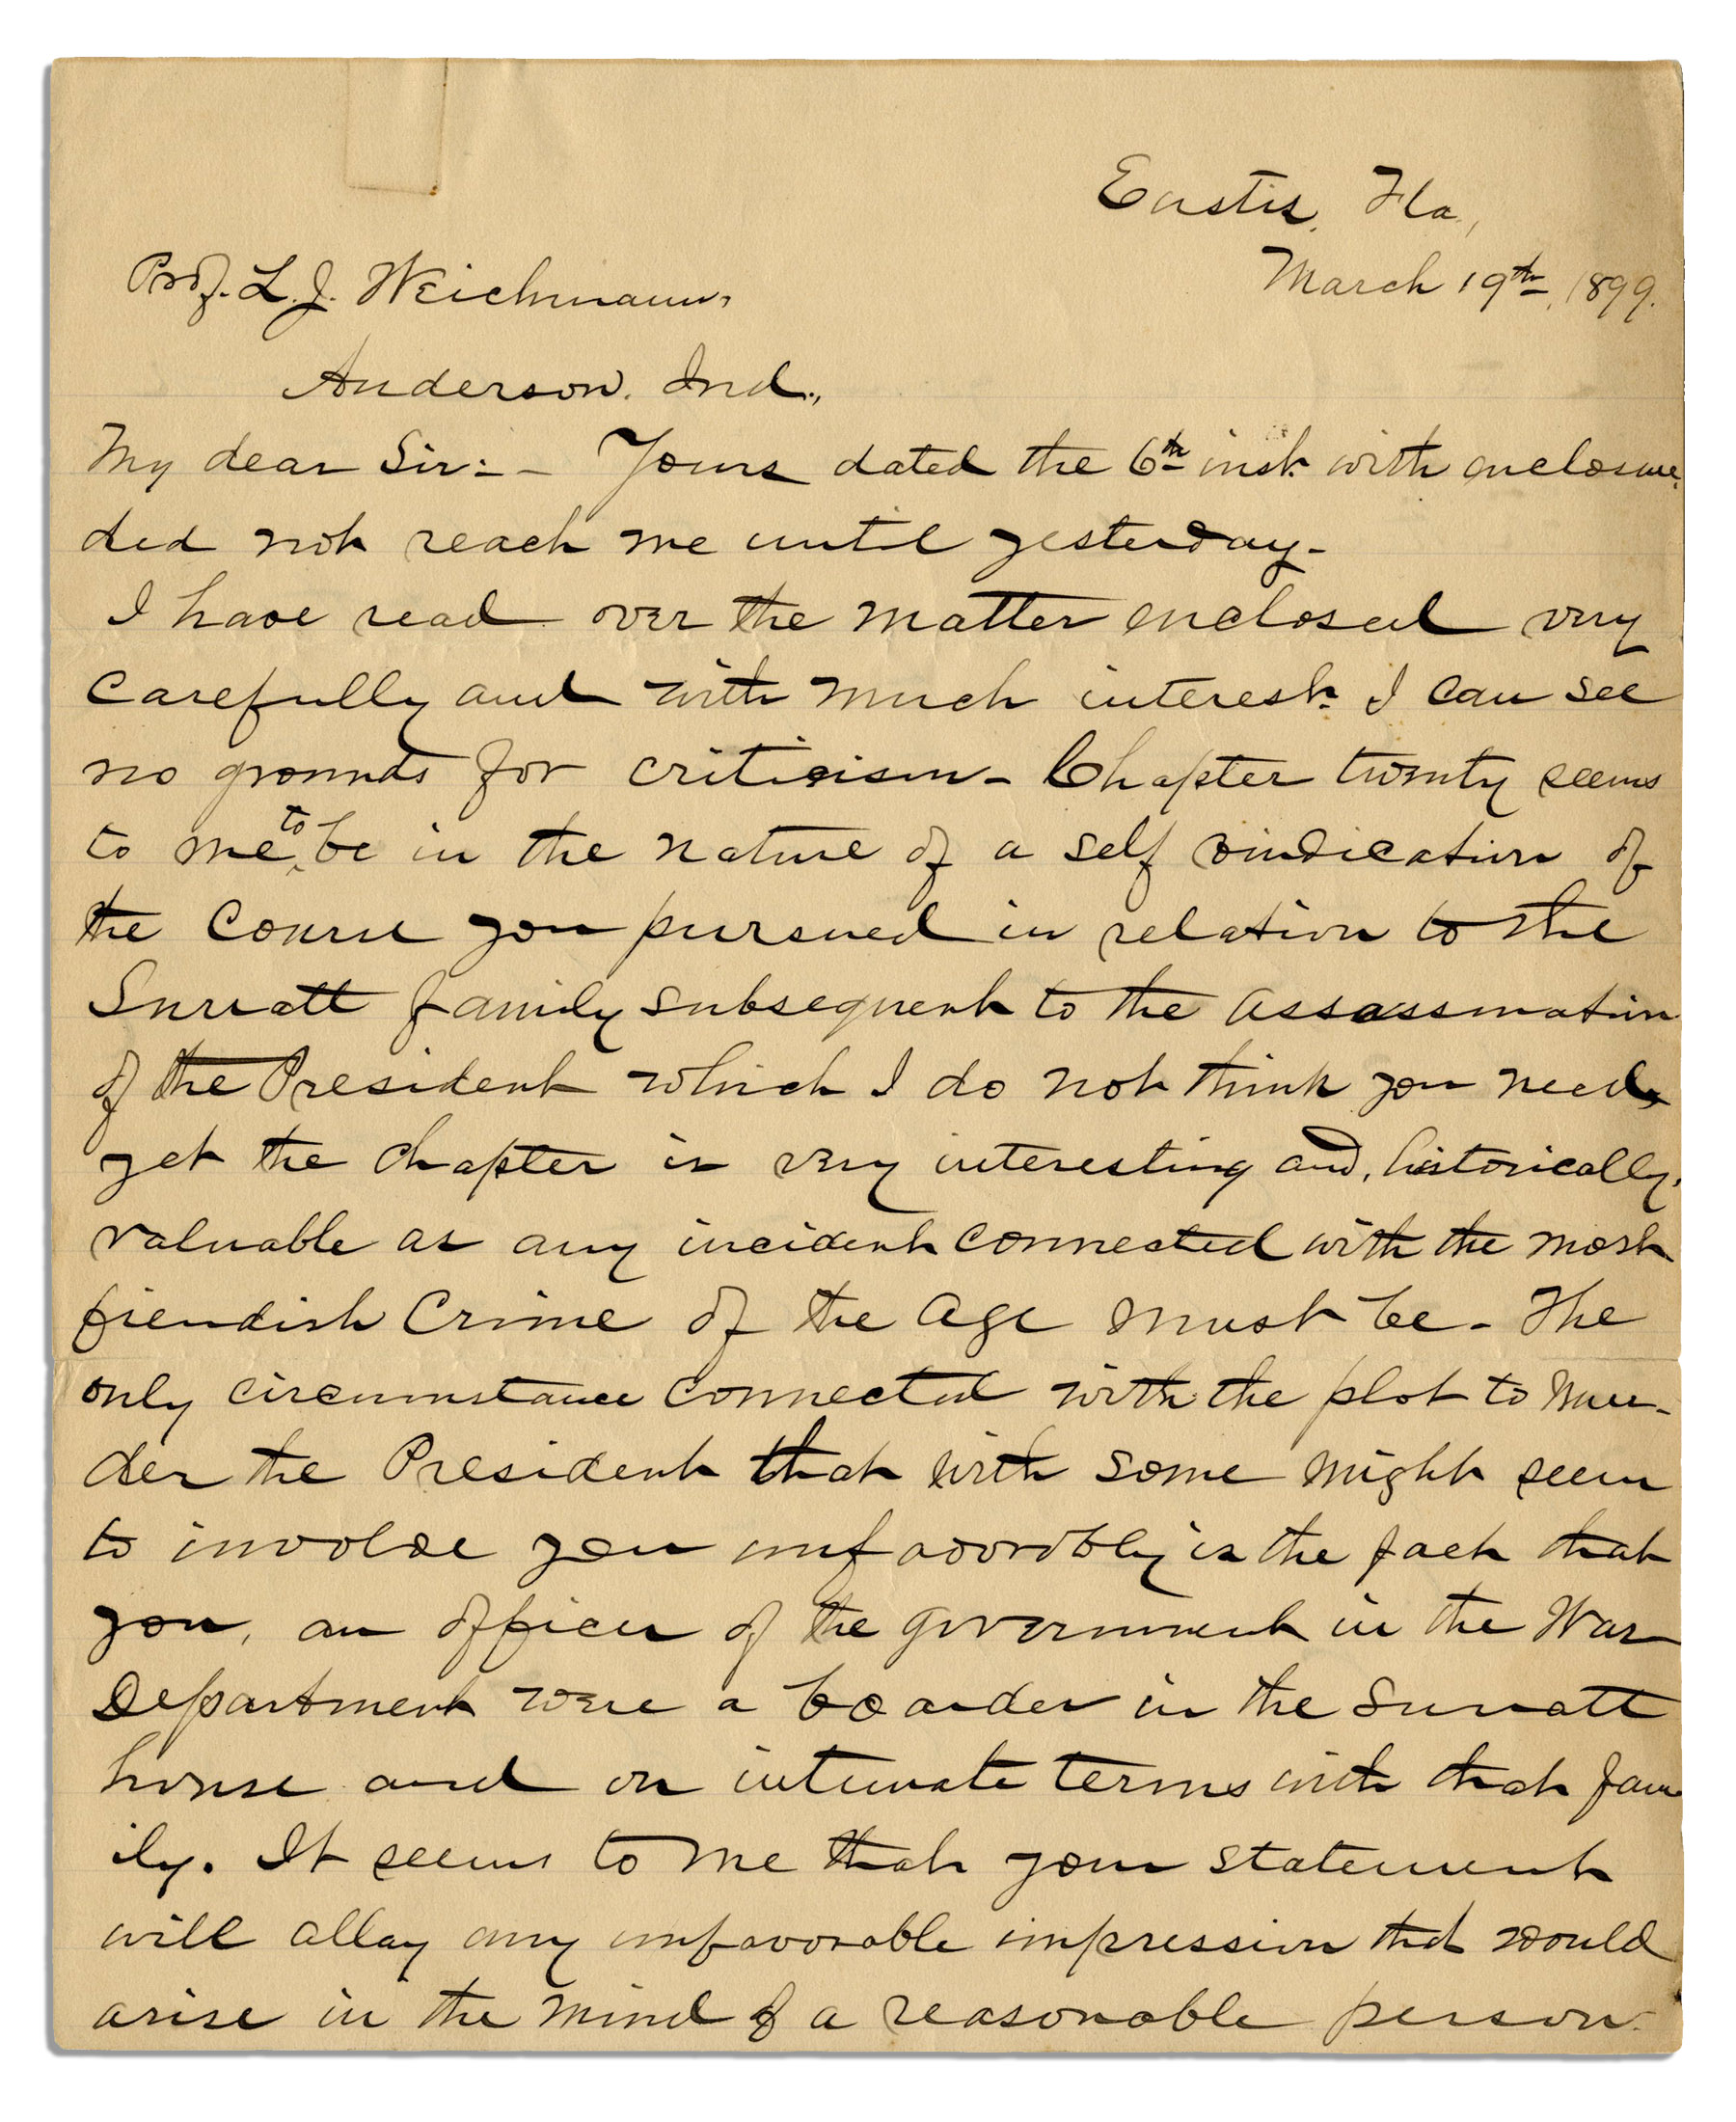 Eustis, Fla,
March 19th, 1899.
Prof. L. J. Weichmann,
Anderson. Ind.,
My dear Sir:- Yours dated the 6th inst. with enclosure,
did not reach me until yesterday-
I have read over the matter enclosed very
carefully and with much interest. I can see
no grounds for criticism- Chapter twenty seems
to me to be in the nature of a self vindication of
the course you pursued in relation to the
Surratt family subsequent to the assassination
of the President which I do not think you need,
yet the chapter is very interesting and, historically,
valuable as any incident connected with the most
fiendish Crime of the age must be- The
only circumstance connected with the plot to mur-
der the President that with some might seem
to involve you unfavorably is the fact that
you, an officer of the government in the War
Department were a boarder in the Surratt
house and on intimate terms with that fam
ily. It seems to me that your statement
will allay any unfavorable impression that would
arise in the mind of a reasonable person.